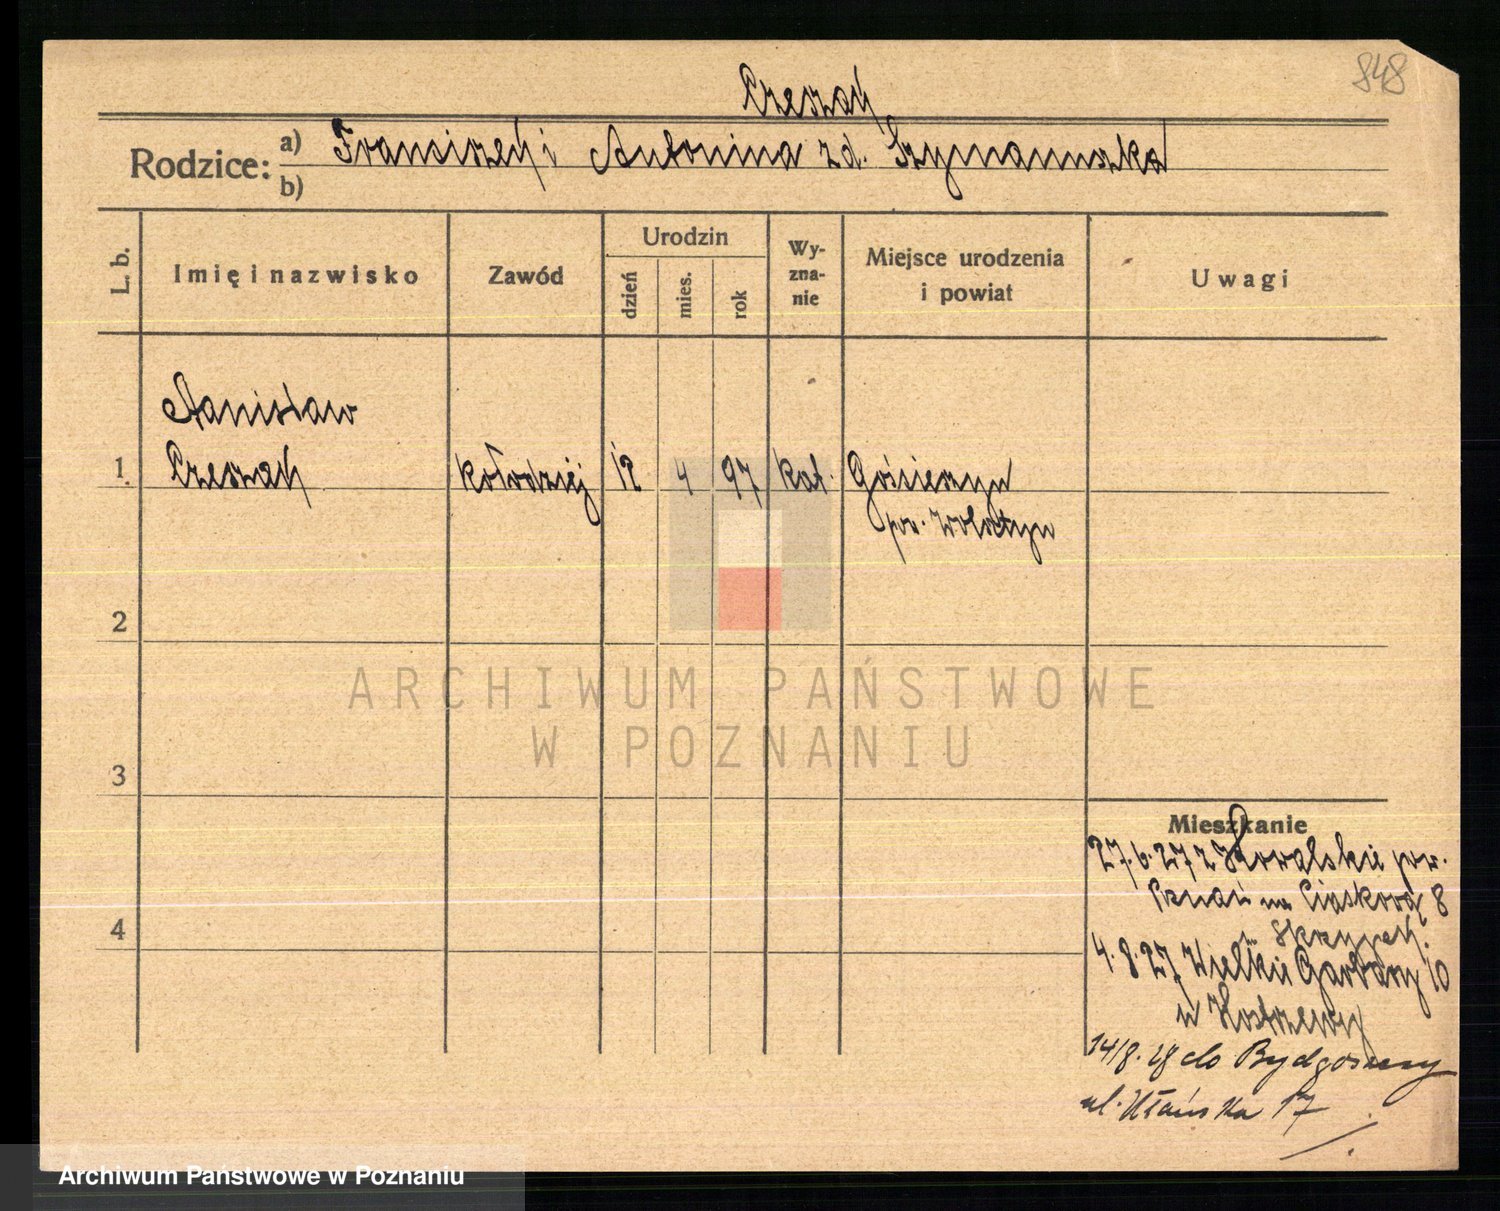 848
Czeszak
Rodzice: a) Franciszek i Antonina zd. Szymanuszka
b)
L. b.
Imię i nazwisko
Zawód
Urodzin
dzień
mies.
rok
Wy-
zna-
nie
Miejsce urodzenia
i powiat
Uwagi
Stanisław
1 Czeszak kołodziej 12 4 97 kat. Gościeszyn
pow. Wolsztyn
2
3
4
ARCHIWUM PAŃSTWOWE
W POZNANIU
Mieszkanie
27.6.27 z Kowalskie pow.
Poznań na Piaskową 8
4.8.27 Wielkie Garbary 10
u
14/8.28 do Bydgoszczy
ul. Ułańska 17
Archiwum Państwowe w Poznaniu